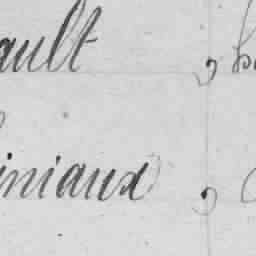 ault ,
iniaux ,